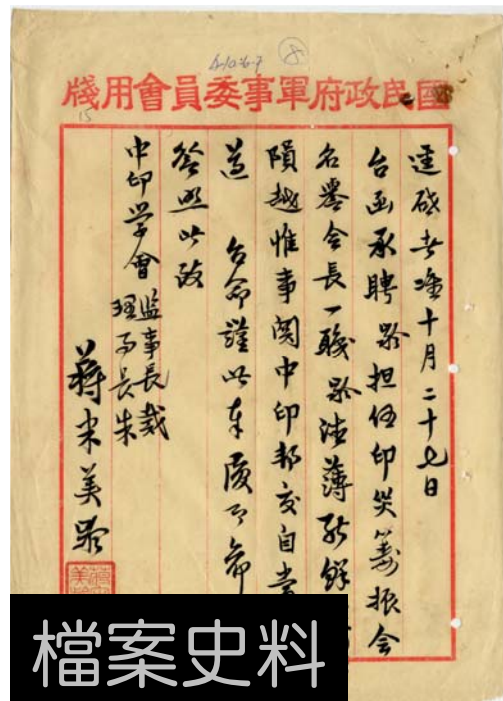 國民政府軍事委員會用牋
逕啟者准十月二十七日
台函承聘齡擔任印災籌振會
名譽會長一職齡德薄能鮮
隕越惟事關中印邦交自當
遵 台命謹此奉復即希
詧照此致
中印學會監事長戴
理事長朱
蔣宋美齡
檔案史料